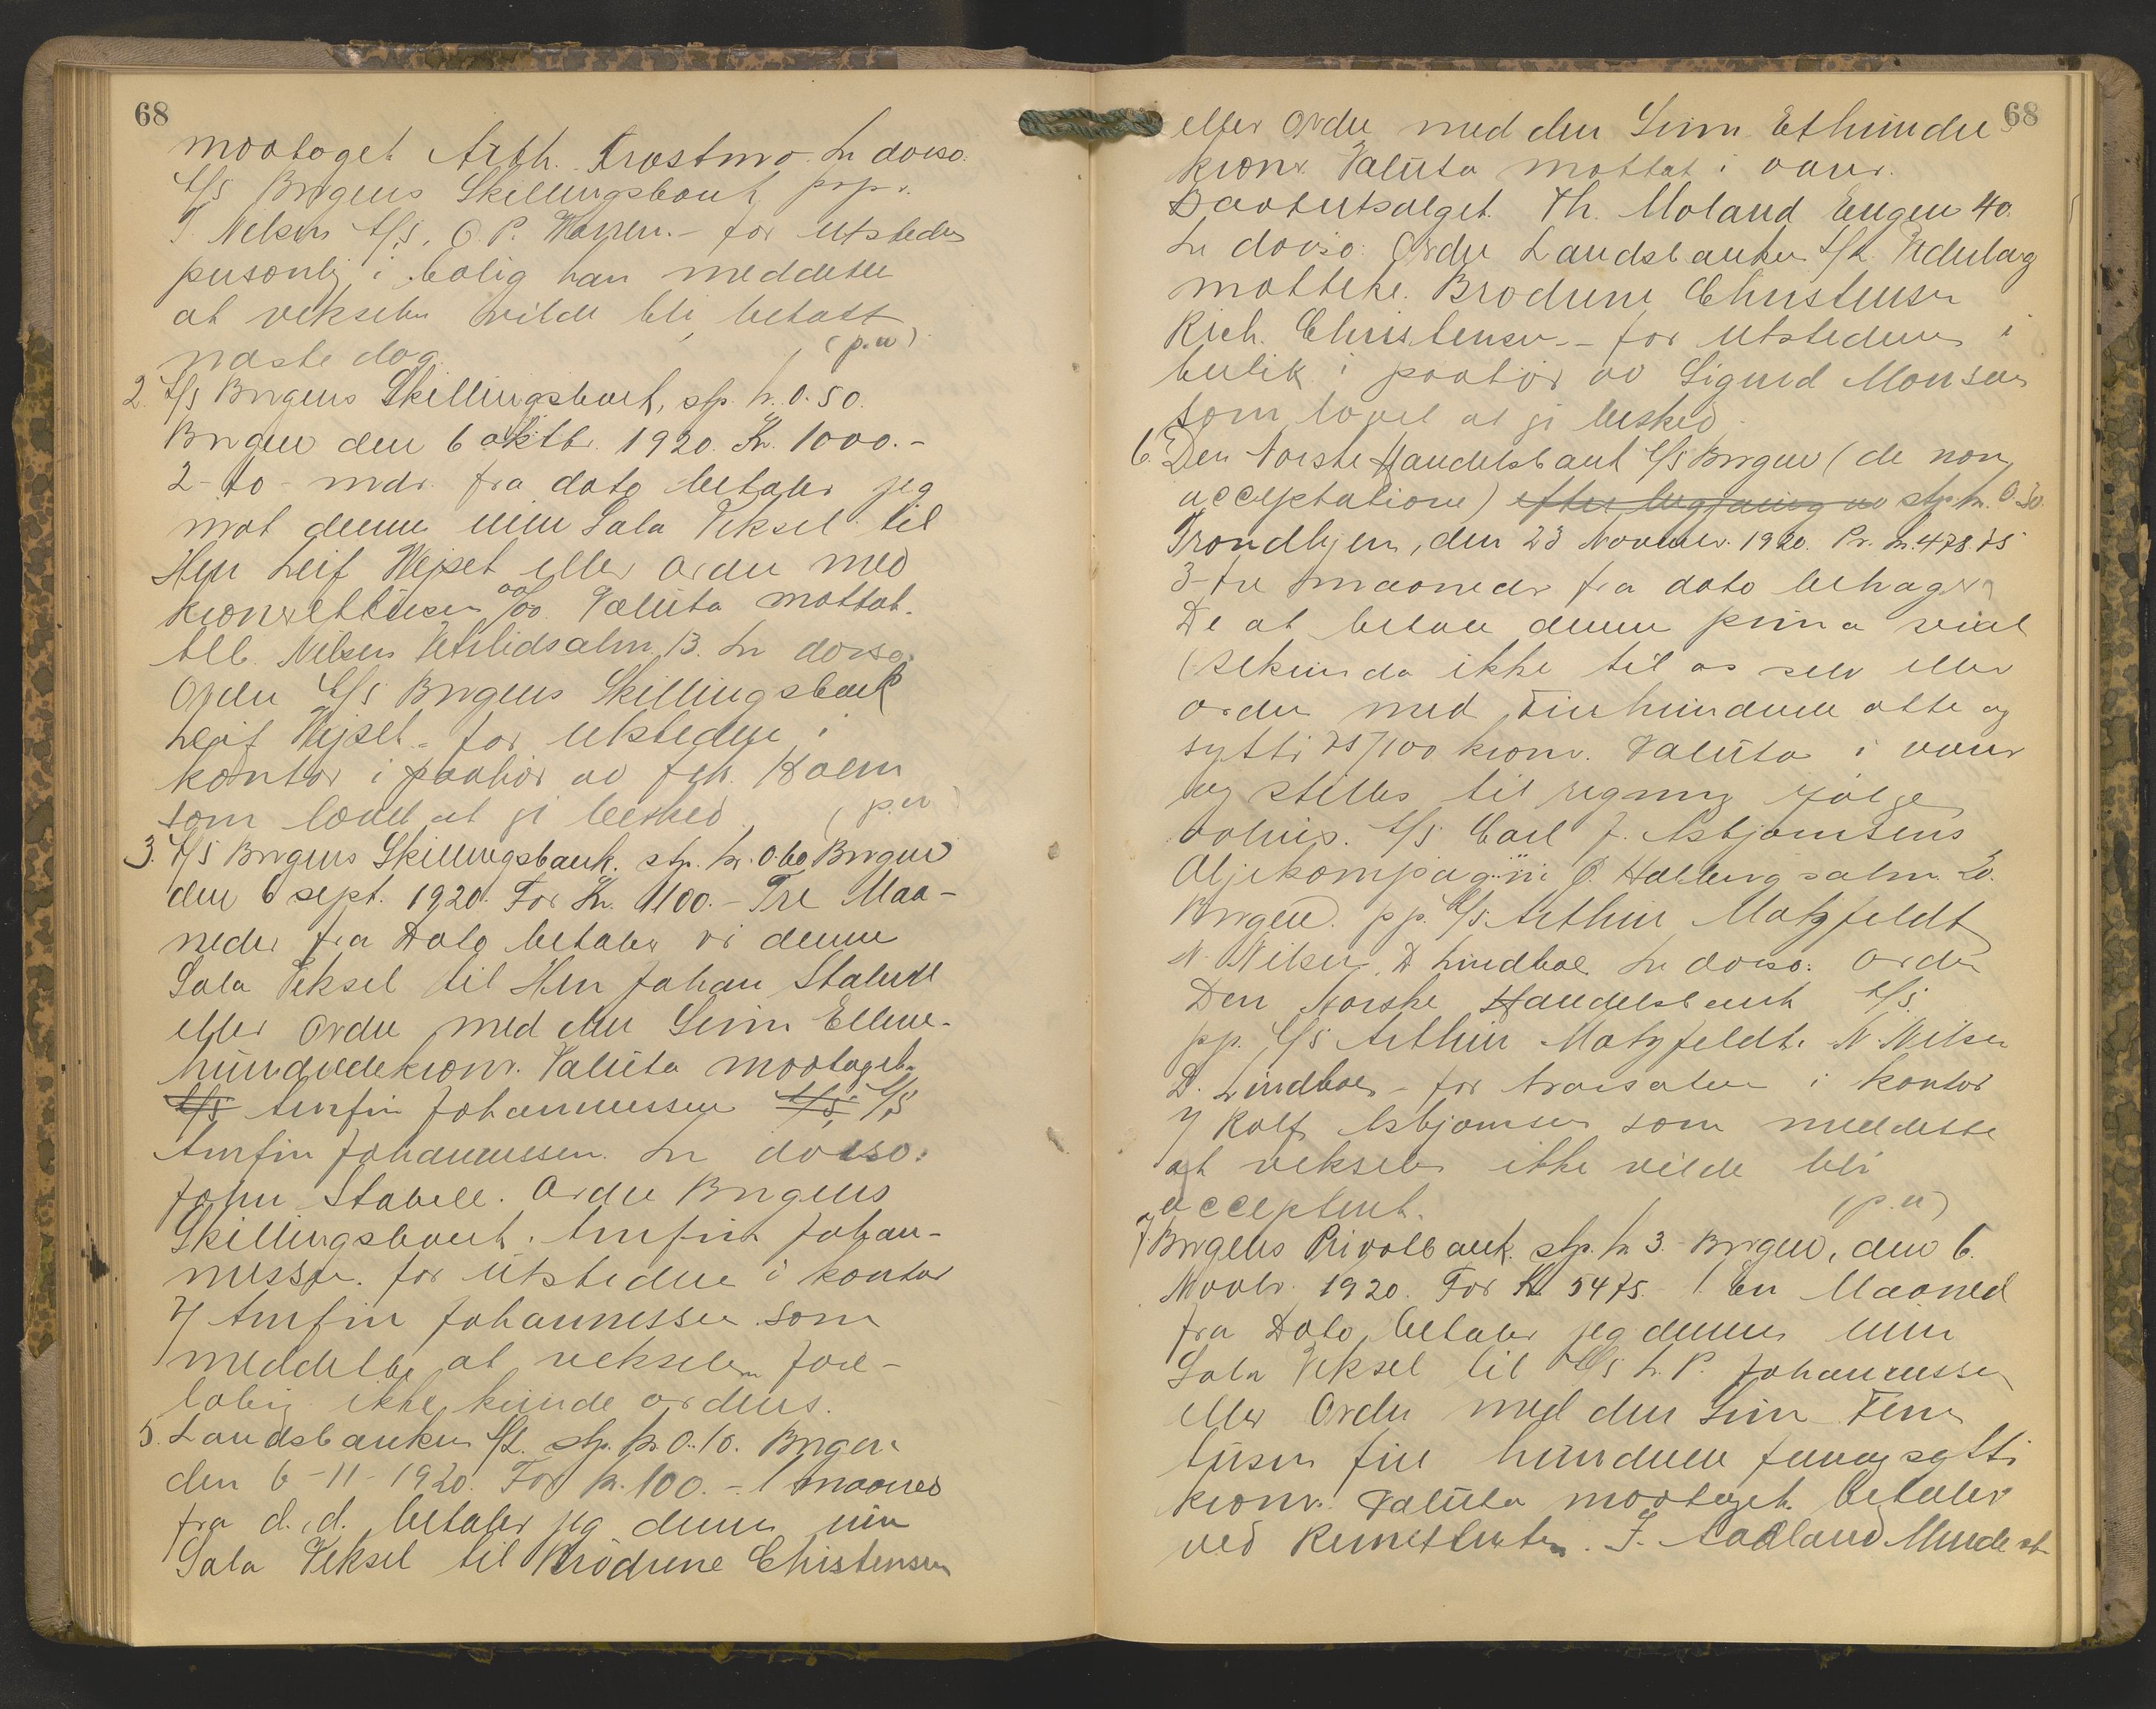 68
mootaget. Arth. Trostmo. In dorso:
A/S Bergens Skillingsbank prp.
T. Nelsen A/S, O. P. - for utsteder
personlig i bolig han meddelte
at vekselen vilde bli betalt
næste dag. (p.u)
2. A/S Bergens Skillingsbank, stp. kr. 0.50.
Bergen den 6 oktbr. 1920. Kr. 1000.-
2-to-mdr. fra dato betaler jeg
mot denne min Sola Veksel til
Herr Leif Wejset eller ordre med
kroner ettusen 00/00. Valuta mottat.
Alb. Nilsen Vetrlidsalm. 13. In dorso:
Ordre A/S Bergens Skillingsbank
Leif Wejset - for utstedere i
kontor i paahør av frk. Holm
som lovet at gi besked. (p.u)
3. A/S Bergens Skillingsbank. stp. kr. 0.60 Bergen
den 6 sept. 1920. For Kr. 1100.- Tre Maa-
neder fra Dato betaler vi denne
Sola Veksel til Herr Johan Stabell
eller Ordre med den Sum Elleve-
hundredekroner. Valuta mootaget.
A/S Arnfin Johannessen A/S A/S
Arnfin Johannessen. In dorso:
John Stabell. Ordre Bergens
Skillingsbank. Arnfin Johan-
nessen. for utstedere i kontor
v/ Arnfin Johannessen som
meddelte at vekselen fore-
løbig ikke kunde ordnes.
5. Landsbanken A/L. stp. kr. 0.10. Bergen
den 6-11-1920. For kr. 100.- 1 maaned
fra d.d. betaler jeg denne min
Sola Veksel til Brødrene Christensen
68
eller Ordre med den Sum Ethundre
kroner Valuta mottat i varer.
Baatutsalget. Th. Moland Engen 40.
In dorso: Ordre Landsbanken A/L Vederlag
mottat. Brødrene Christensen
Rich. Christensen - for utstederen i
butik i paahør av Sigurd Monsen
som lovet at gi besked.
6. Den Norske Handelsbank A/S Bergen (de non
acceptatione) efter begjæring av stp. kr. 0.30.
Trondhjem, den 23 November 1920. Pr. kr. 478.75
3-tre maaneder fra dato behager
De at betale denne prima veksel
(sekunda ikke) til os selv eller
ordre med Firehundrede otte og
sytti 75/100 kroner. Valuta i varer
og stilles til regning ifølge
advis. A/S Carl J. Asbjørnsens
Oljekompagni Ö. Holbergsalm. 20.
Bergen. pp. A/S Arthur Motzfeldt
N. Nilsen, D. Lindboe. In dorso: Ordre
Den Norske Handelsbank A/S.
pp. A/S Arthur Motzfeldt. N. Nilsen
D. Lindboe - for trassaten i kontor
v/ Rolf Asbjørnsen som meddelte
at vekselen ikke vilde bli
acceptert. (p.u)
7. Bergens Privatbank. stp. kr 3. Bergen, den 6.
Novbr. 1920. For Kr. 5475. 1. En Maaned
fra Dato betaler jeg denne min
Sola Veksel til A/S L. P. Johannessen
eller Ordre med den Sum Fem
tusen fire hundrede femogsytti
kroner. Valuta mootaget. betaler
ved Remittenten. J. Aadland Minde st